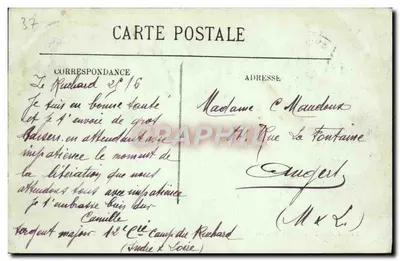 37-
CARTE POSTALE
CORRESPONDANCE
ADRESSE
Le Ruchard 25/6
Je suis en bonne santé
et je t'envoie de gros
baisers en attendant avec
impatience le moment de
la libération que nous
attendons tous avec impatience
je t'embrasse bien sur
Camille
sergent major 12e Cie Camp du Ruchard
(Indre & Loire)
Madame C
Rue La Fontaine
Angers
(M & L)
CARTORUM